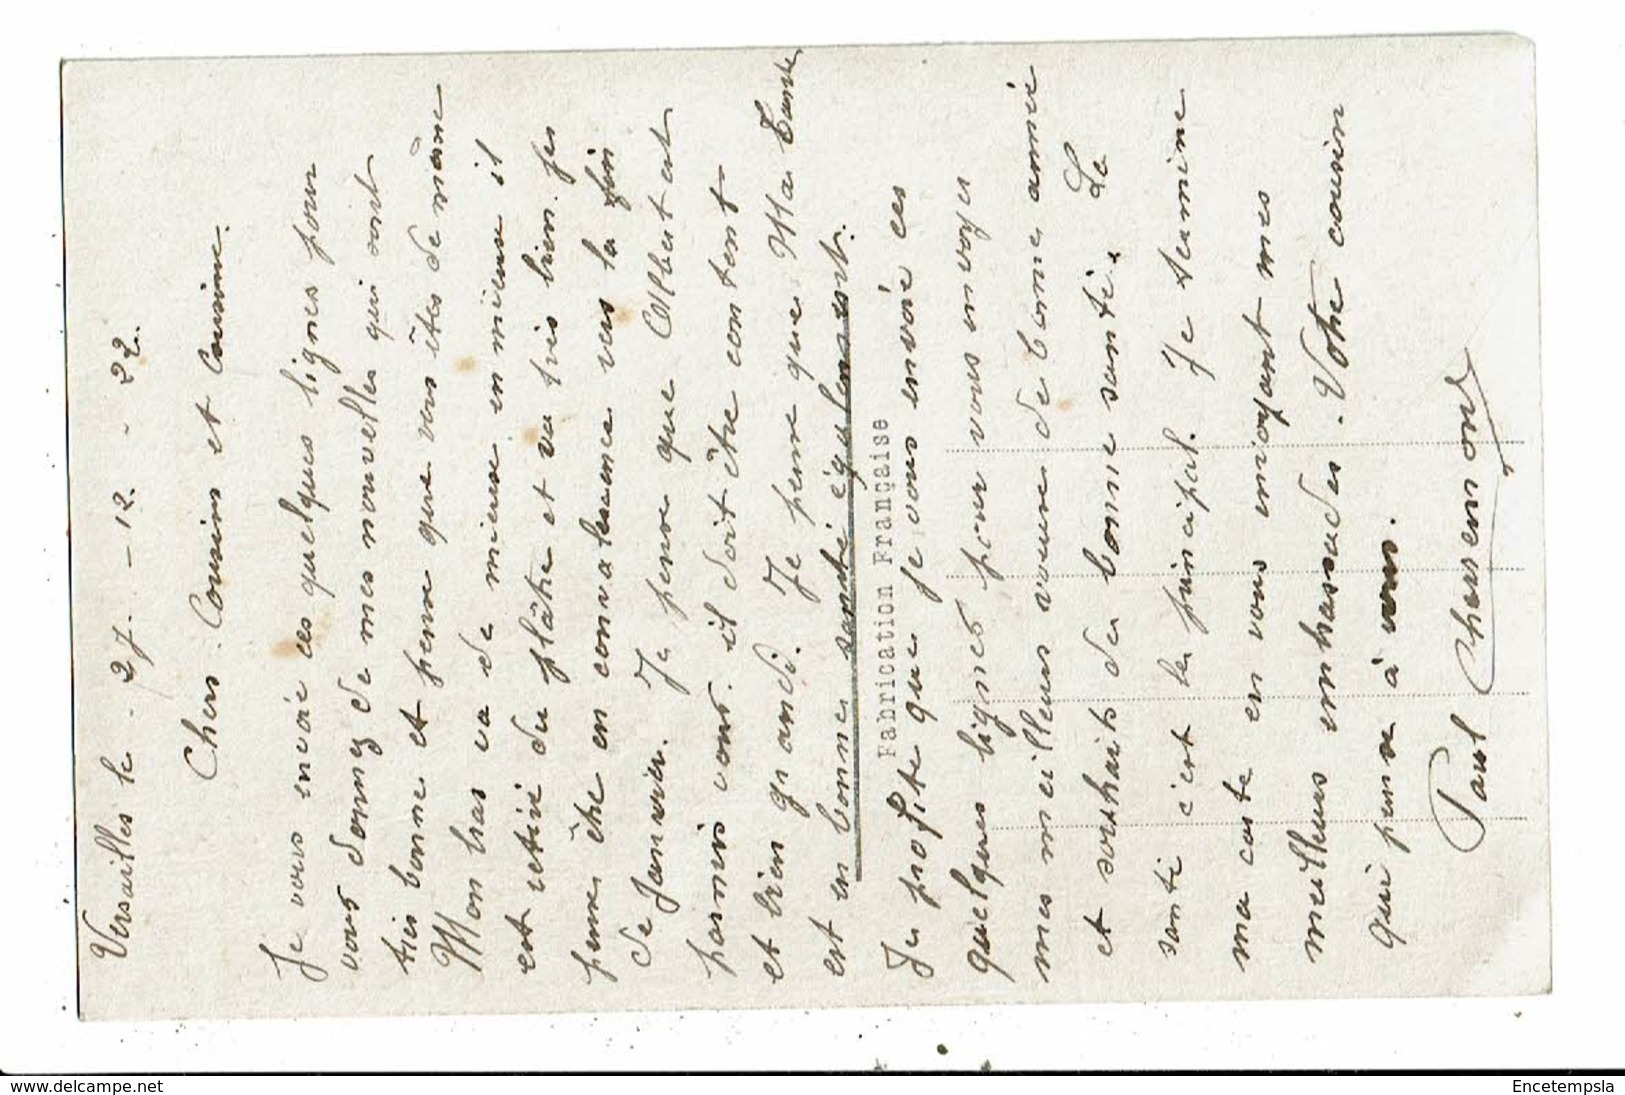 Versailles le. 27. - 12. - 22.
Chers. Cousins et Cousine.
Je vous envoie ces quelques lignes pour
vous donnez de mes nouvelles qui sont
très bonne et pense que vous êtes de même
Mon bras va de mieux en mieux il
est retiré du plâtre et va très bien. Je
pense être en convalescence vers la fin
de Janvier. Je pense que Albert est
parmis vous. il doit être content
et bien grandi. Je pense que Ma Tante
est en bonne santé également.
Fabrication Française
Je profite que je vous envoie ces
quelques lignes pour vous envoyer
mes meilleurs voeux de bonne année
et souhaits de bonne santé. La
santé c'est le principal. Je termine
ma carte en vous envoyant mes
meilleures embrassades. Votre cousin
qui pense à vous.
Paul
www.delcampe.net
Encetempsla